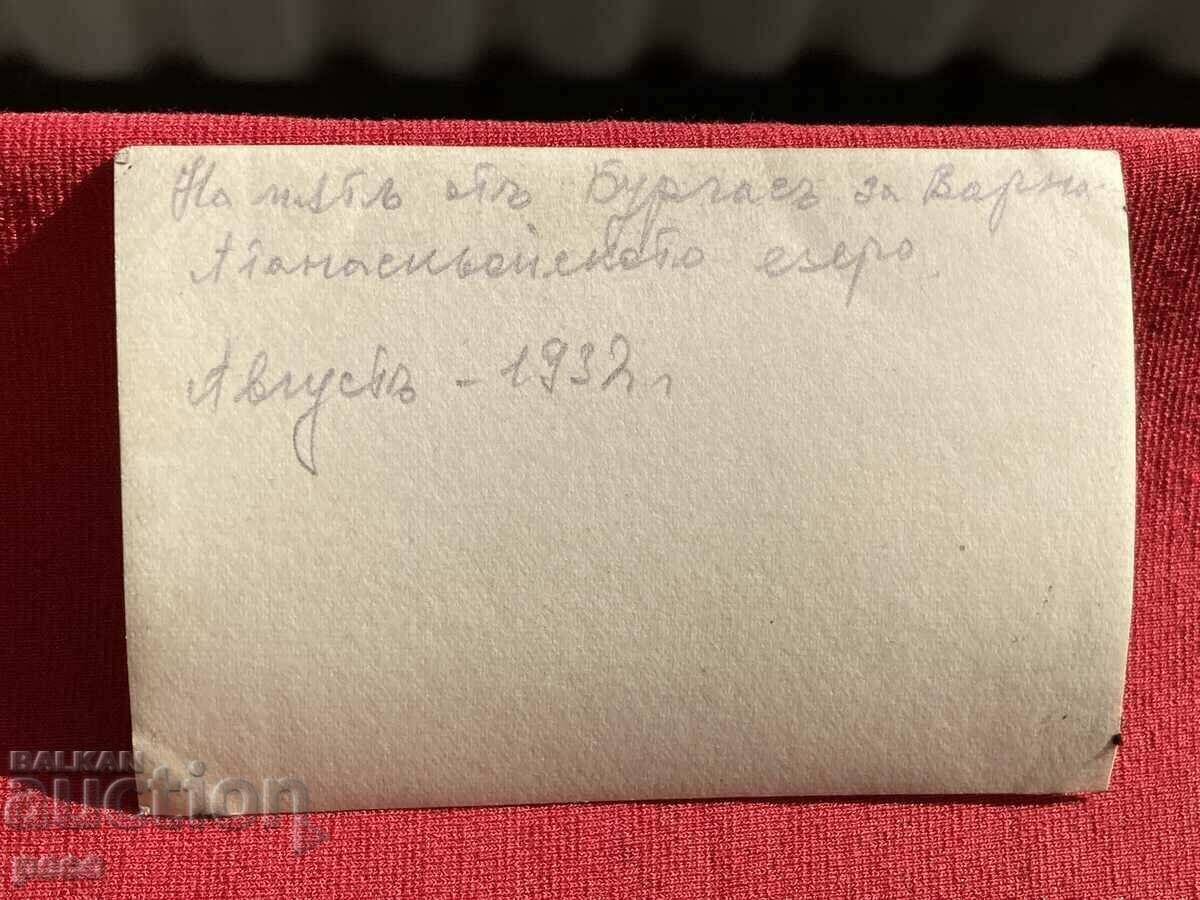 На пѫтъ отъ Бургасъ за Варна
Атанаскьойското езеро.
Августъ - 1932 г.
BALKAN
auction
pess